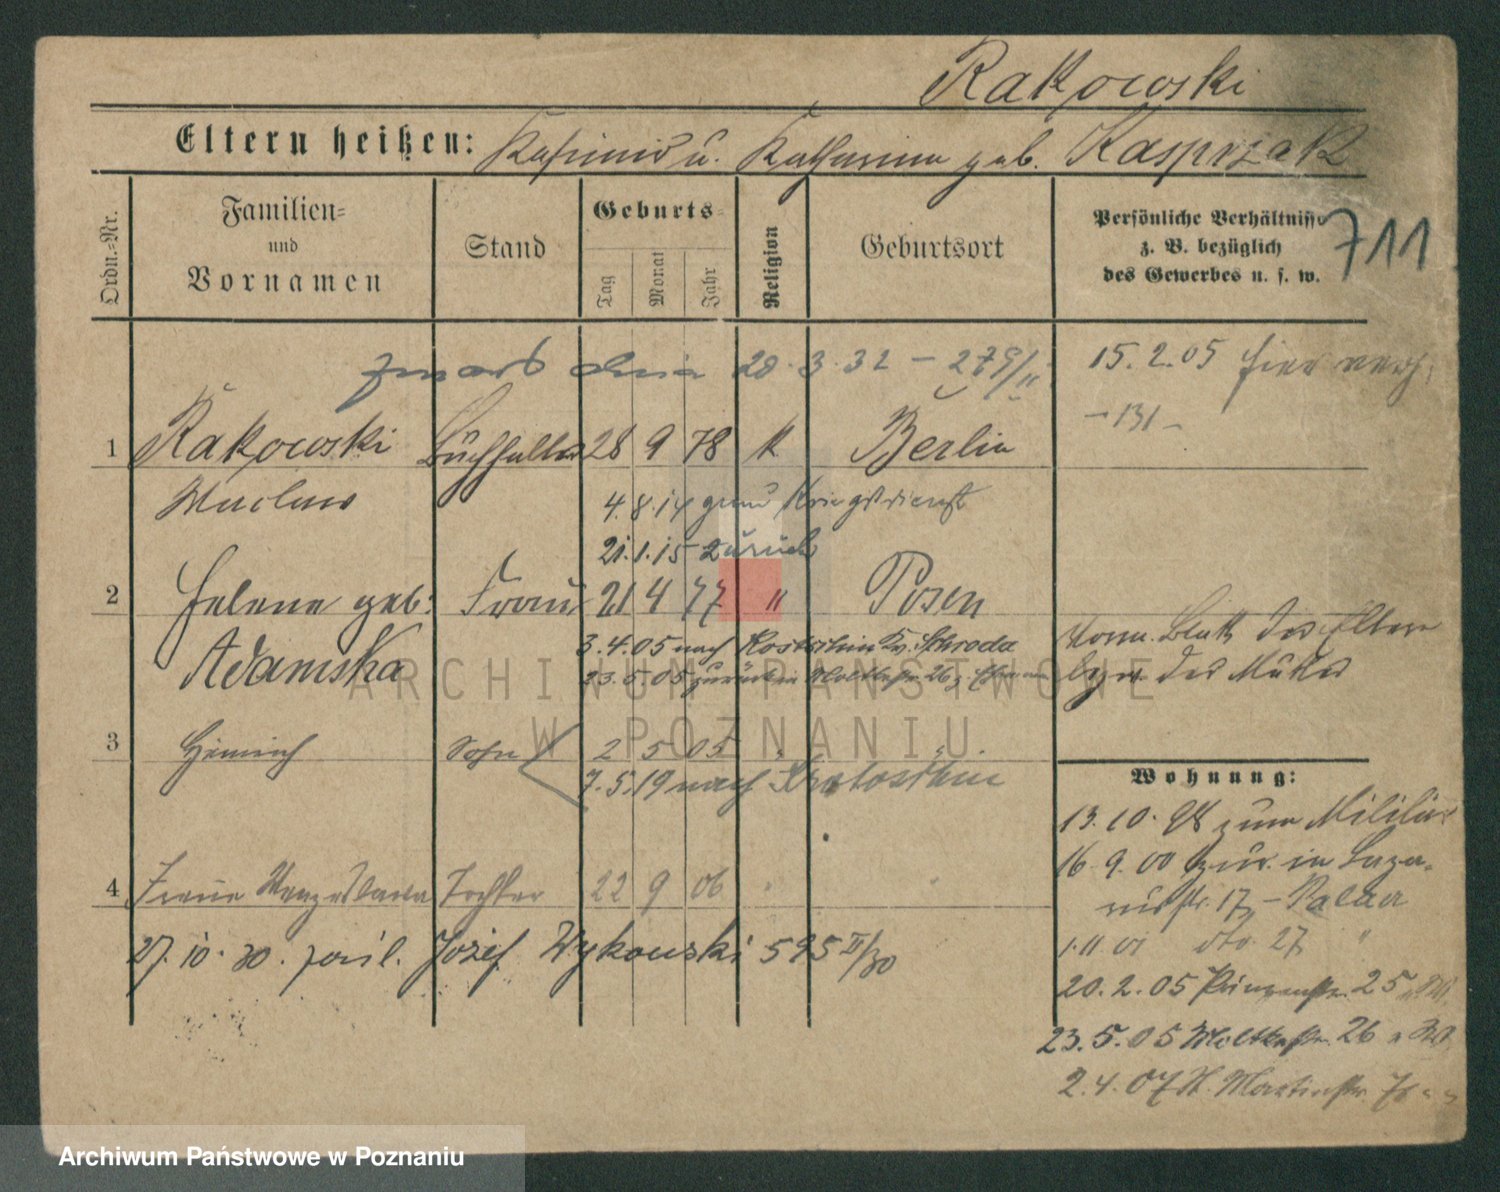 Rakowski
Eltern heißen: Kasimir u. Katharina geb. Kasprzak
711
Ordn.=Nr.
Familien= und Vornamen
Stand
Geburts=
Tag Monat Jahr
Religion
Geburtsort
Persönliche Verhältnisse
z. B. bezüglich
des Gewerbes u. s. w.
zmarł dnia 20.3.32 – 279/II
15.2.05 hier verh.
– 131 –
1 Rakowski Buchhalter 28 9 78 k Berlin
Waclaw
4.8.14 zum Kriegsdienst
21.1.15 zurück
2 Helene geb. Frau 21 4 77 " Posen
Adamska
3.4.05 nach Kostschin Kr. Schroda
23.5.05 zurück in Moltkestr. 26 z.
Vorm. Blatt des
der Mutter
3 Heinrich Sohn 2 5 05 "
7.5.19 nach Krotoschin
4 Irene Wenzeslawa Tochter 22 9 06 "
27.10.30. Józef Wykowski 595 II/30
Wohnung:
13.10.98 zum Militär
16.9.00 zur. in Laza-
russtr. 17 –
1.11.01 dto. 27 "
20.2.05 Prinzenstr. 25
23.5.05 Moltkestr. 26
2.4.07 St. Martinstr.
ARCHIWUM PAŃSTWOWE
W POZNANIU
Archiwum Państwowe w Poznaniu